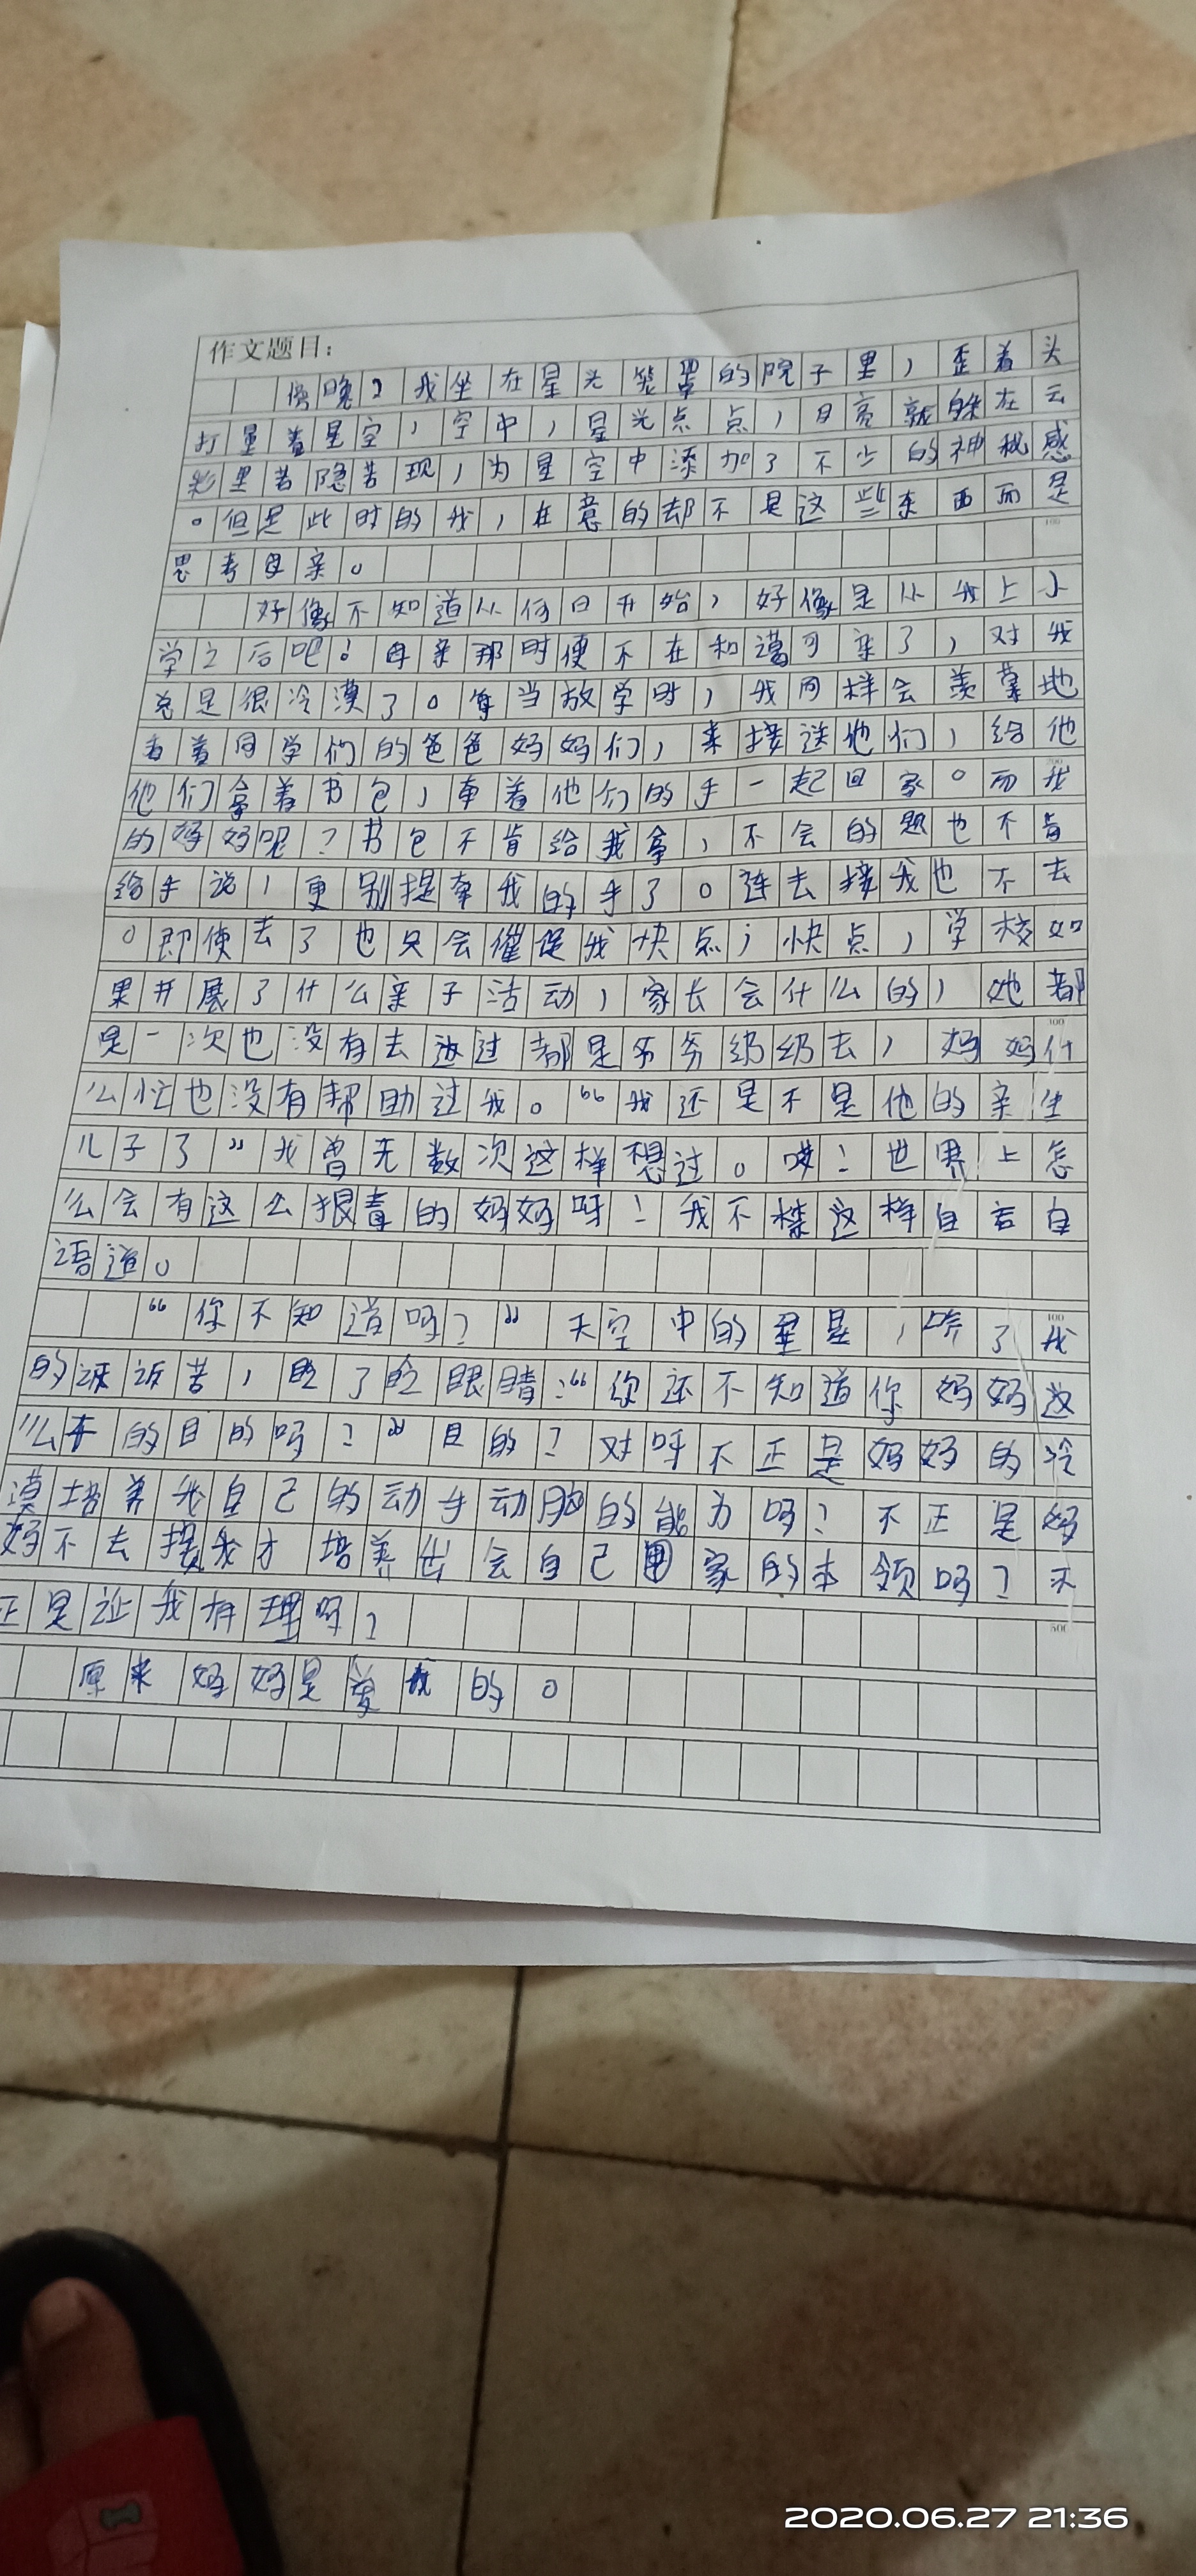 作文题目：
傍晚，我坐在星光笼罩的院子里，歪着头
打量着星空，空中，星光点点，月亮就躲在云
彩里若隐若现，为星空中添加了不少的神秘感
。但是此时的我，在意的却不是这些东西而是
思考母亲。
好像不知道从何日开始，好像是从我上小
学之后吧！母亲那时便不在和蔼可亲了，对我
总是很冷漠了。每当放学时，我同样会羡慕地
看着同学们的爸爸妈妈们，来接送他们，给他
他们拿着书包，牵着他们的手一起回家。而我
的妈妈呢？书包不肯给我拿，不会的题也不肯
给我说，更别提牵我的手了。连去接我也不去
。即使去了也只会催促我快点，快点，学校如
果开展了什么亲子活动，家长会什么的，她都
是一次也没有去过都是爷爷奶奶去，妈妈什
么忙也没有帮助过我。“我还是不是他的亲生
儿子了”我曾无数次这样想过。哎！世界上怎
么会有这么狠毒的妈妈呀！我不禁这样自言自
语道。
“你不知道吗？”天空中的星星，听了我
的诉苦，眨了眨眼睛：“你还不知道你妈妈这
么干的目的吗？”目的？对呀不正是妈妈的冷
漠培养我自己的动手动脑的能力吗？不正是妈
妈不去接我才培养出会自己回家的本领吗？不
正是让我有理吗？
原来妈妈是爱我的。
100
200
300
400
500
2020.06.27 21:36